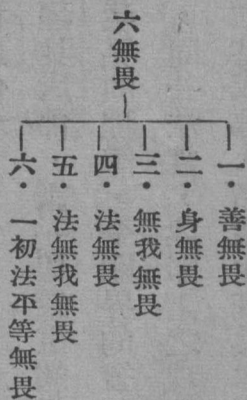 六無畏
一・善無畏
二・身無畏
三・無我無畏
四・法無畏
五・法無我無畏
六・一初法平等無畏